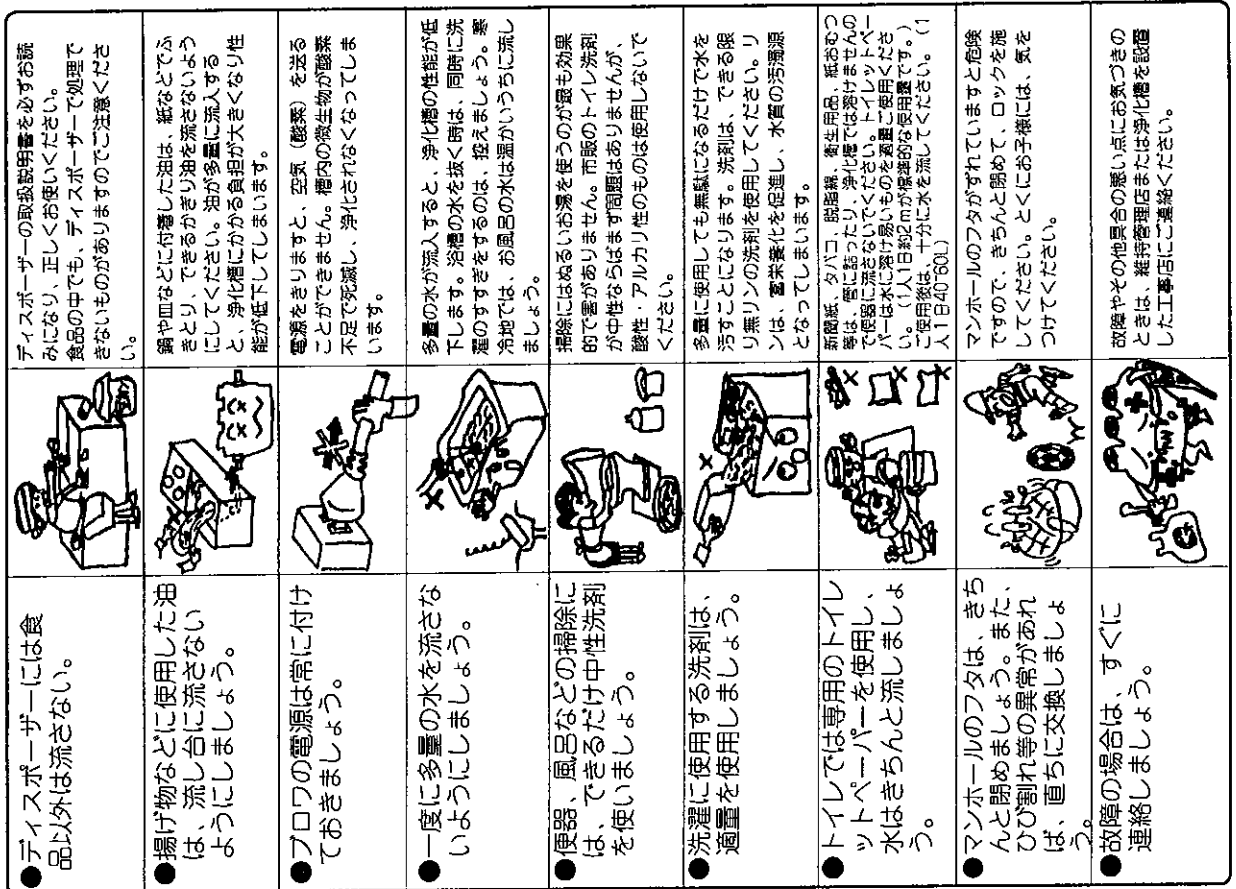 ●ディスポーザーには食
品以外は流さない。
ディスポーザーの取扱説明書を必ずお読
みになり、正しくお使いください。
食品の中でも、ディスポーザーで処理で
きないものがありますのでご注意くださ
い。
●揚げ物などに使用した油
は、流し台に流さない
ようにしましょう。
鍋や皿などに付着した油は、紙などでふ
きとり、できるかぎり油を流さないよう
にしてください。油が多量に流入する
と、浄化槽にかかる負担が大きくなり性
能が低下してしまいます。
●ブロワの電源は常に付け
ておきましょう。
電源をきりますと、空気(酸素)を送る
ことができません。槽内の微生物が酸素
不足で死滅し、浄化されなくなってしま
います。
●一度に多量の水を流さな
いようにしましょう。
多量の水が流入すると、浄化槽の性能が低
下します。浴槽の水を抜く時は、同時に洗
濯のすすぎをするのは、控えましょう。寒
冷地では、お風呂の水は温かいうちに流し
ましょう。
●便器、風呂などの掃除に
は、できるだけ中性洗剤
を使いましょう。
掃除にはぬるいお湯を使うのが最も効果
的で害がありません。市販のトイレ洗剤
が中性ならばまず問題はありませんが、
酸性・アルカリ性のものは使用しないで
ください。
●洗濯に使用する洗剤は、
適量を使用しましょう。
多量に使用しても無駄になるだけで水を
汚すことになります。洗剤は、できる限
り無リンの洗剤を使用してください。リ
ンは、富栄養化を促進し、水質の汚濁源
となってしまいます。
●トイレでは専用のトイレ
ットペーパーを使用し、
水はきちんと流しましょ
う。
新聞紙、タバコ、脱脂綿、衛生用品、紙おむつ
等は、管に詰ったり、浄化槽では溶けませんの
で便器に流さないでください。トイレットペー
パーは水に溶け易いものを適量ご使用くださ
い。(1人1日約2mが標準的な使用量です。)
ご使用後は、十分に水を流してください。(1
人1日40~60L)
●マンホールのフタは、きち
んと閉めましょう。また、
ひび割れ等の異常があれ
ば、直ちに交換しましょ
う。
マンホールのフタがずれていますと危険
ですので、きちんと閉めて、ロックを施
してください。とくにお子様には、気を
つけてください。
●故障の場合は、すぐに
連絡しましょう。
故障やその他具合の悪い点にお気づきの
ときは、維持管理店または浄化槽を設置
した工事店にご連絡ください。